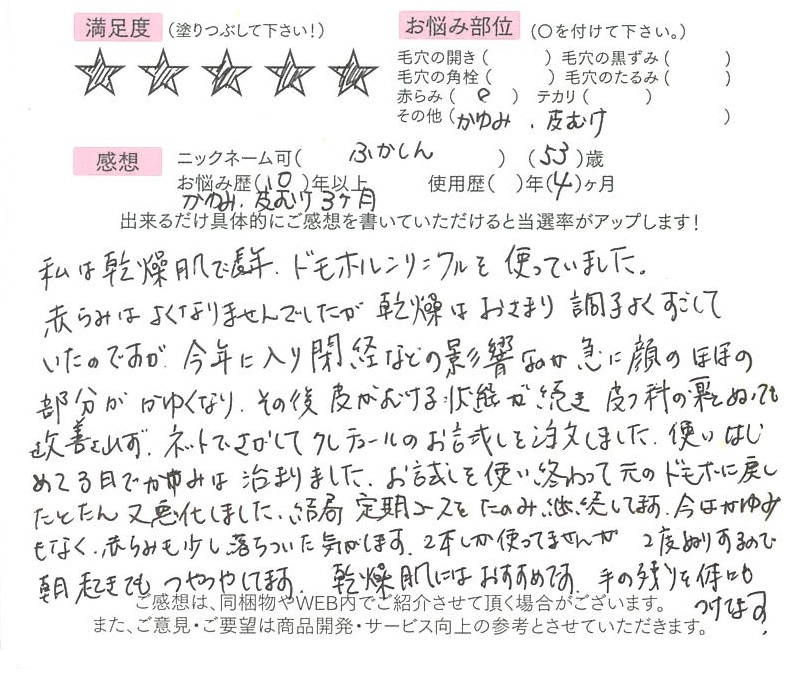 満足度 (塗りつぶして下さい!)
お悩み部位 (〇を付けて下さい。)
毛穴の開き( ) 毛穴の黒ずみ( )
毛穴の角栓( ) 毛穴のたるみ( )
赤らみ( o ) テカリ( )
その他(かゆみ、皮むけ )
感想 ニックネーム可( ふかしん ) (53)歳
お悩み歴(10)年以上 使用歴( )年(4)ヶ月
かゆみ、皮むけ3ヶ月
出来るだけ具体的にご感想を書いていただけると当選率がアップします!
私は乾燥肌で長年、ドモホルンリンクルを使っていました。
赤らみはよくなりませんでしたが乾燥はおさまり調子よくすごして
いたのですが、今年に入り閉経などの影響なのか急に顔のほほの
部分がかゆくなり、その後皮がむける状態が続き皮フ科の薬をぬっても
改善せず、ネットでさがしてクレジュールのお試しを注文しました。使いはじ
めて3日でかゆみは治まりました。お試しを使い終わって元のドモホに戻し
たとたん又悪化しました。結局定期コースをたのみ継続してます。今はかゆみ
もなく、赤らみも少し落ちついた気がします。2本しか使ってませんが2度ぬりするので
朝起きてもつやつやしてます。乾燥肌にはおすすめです。手の残りを体にも
つけてます。
ご感想は、同梱物やWEB内でご紹介させて頂く場合がございます。
また、ご意見・ご要望は商品開発・サービス向上の参考とさせていただきます。